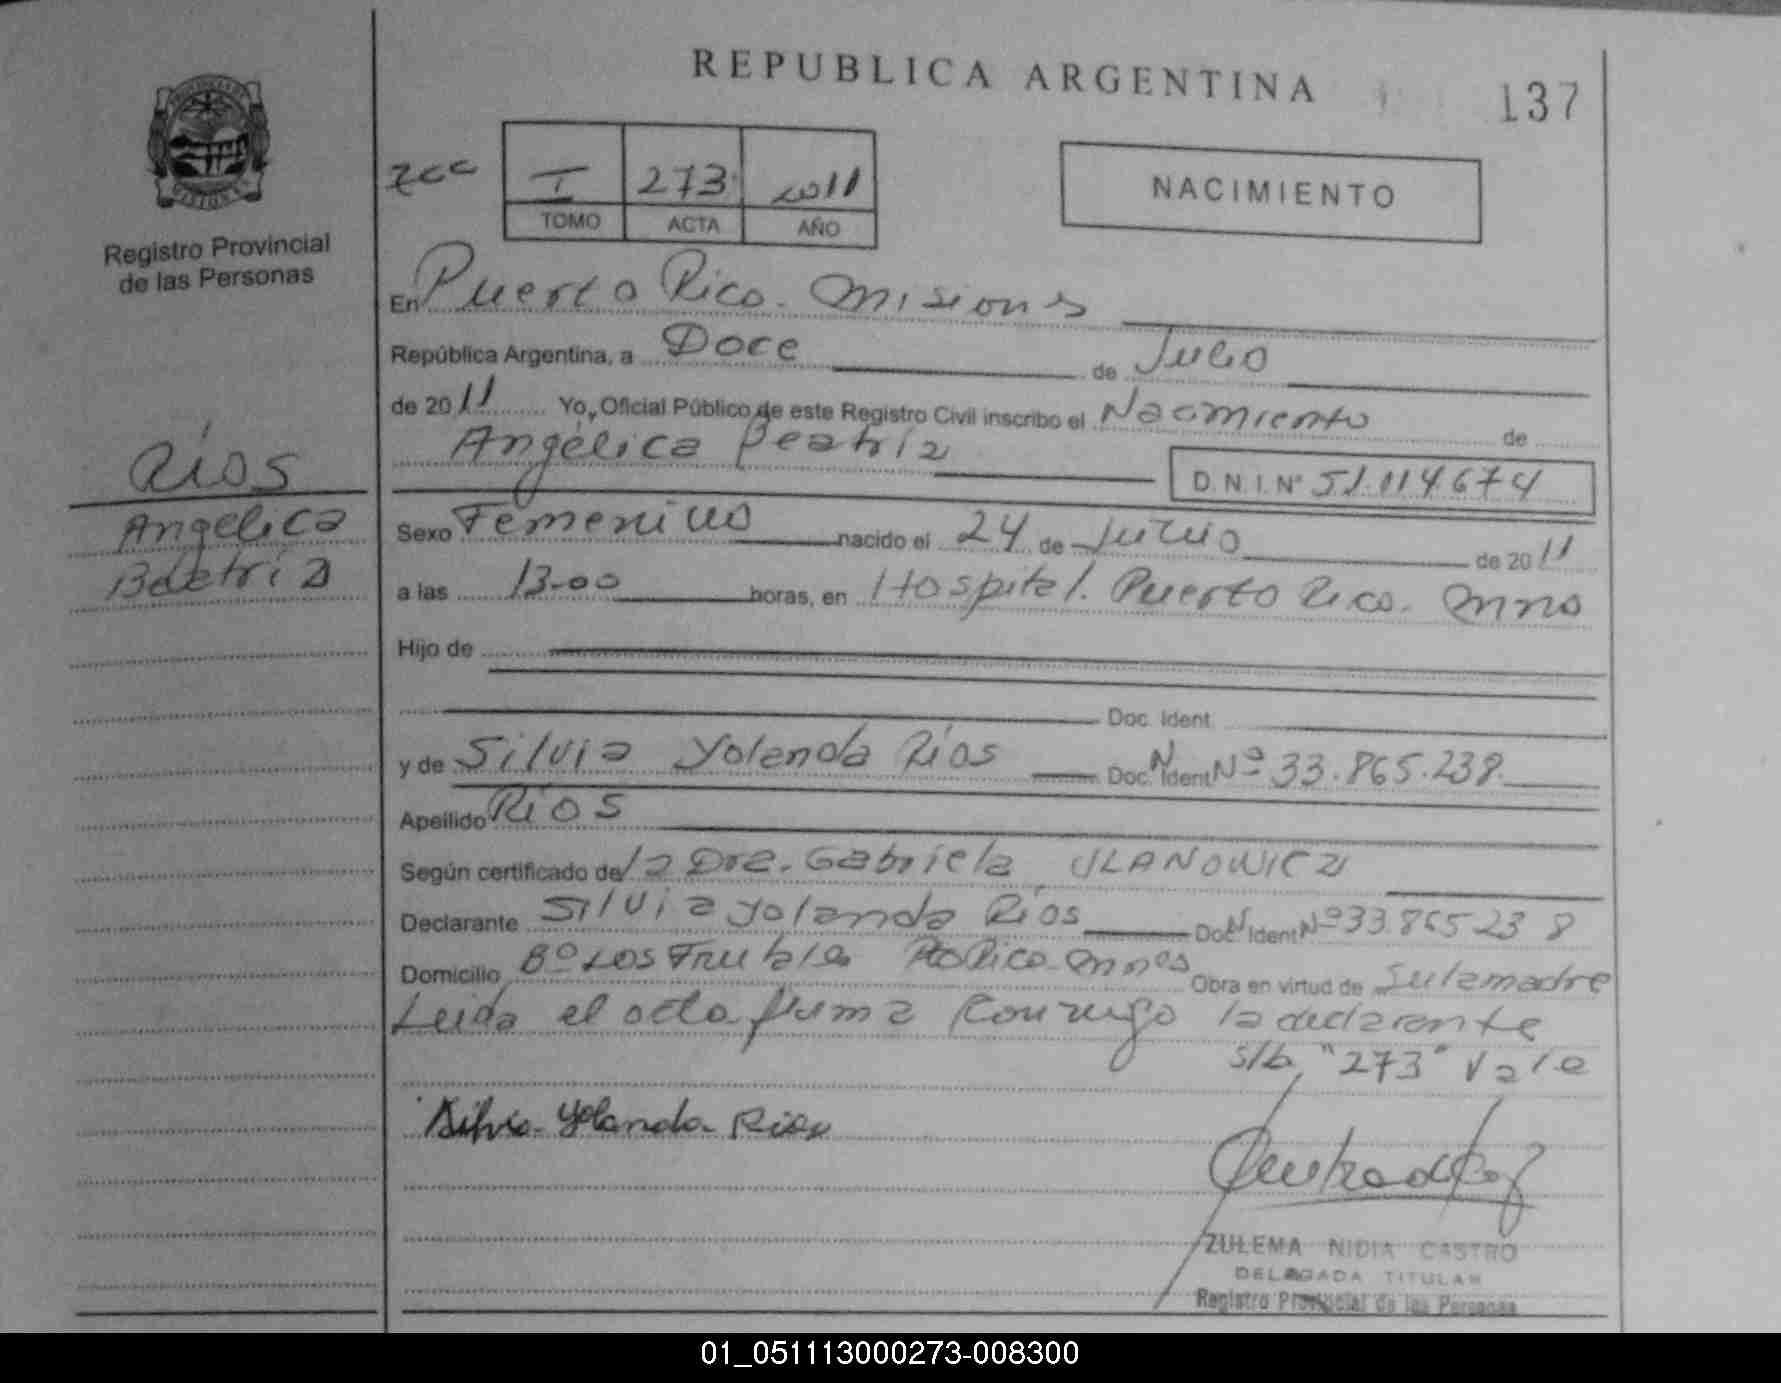 REPUBLICA ARGENTINA
137
I 273 2011
TOMO ACTA AÑO
NACIMIENTO
Registro Provincial
de las Personas
En Puerto Rico. Misiones
República Argentina, a Doce de Julio
de 2011 Yo, Oficial Público de este Registro Civil inscribo el Nacimiento de
Angélica Beatriz D.N.I.Nº 51.114.674
Ríos
Angélica
Beatriz
Sexo Femenino nacido el 24 de Junio de 2011
a las 13-00 horas, en Hospital. Puerto Rico. Mnes
Hijo de
Doc. Ident.
y de Silvia Yolanda Ríos Doc. N. Ident Nº 33.865.238
Apellido Ríos
Según certificado de la Dra. Gabriela ULANOWICZ
Declarante Silvia Yolanda Ríos Doc N Ident Nº 33.865238
Domicilio Bº Los Pto Rico Mnes Obra en virtud de Ser la madre
Leída el acta firma conmigo la declarante
s/b "273" Vale
Silvia Yolanda Rios
ZULEMA NIDIA CASTRO
DELEGADA TITULAR
Registro Provincial de las Personas
01_051113000273-008300